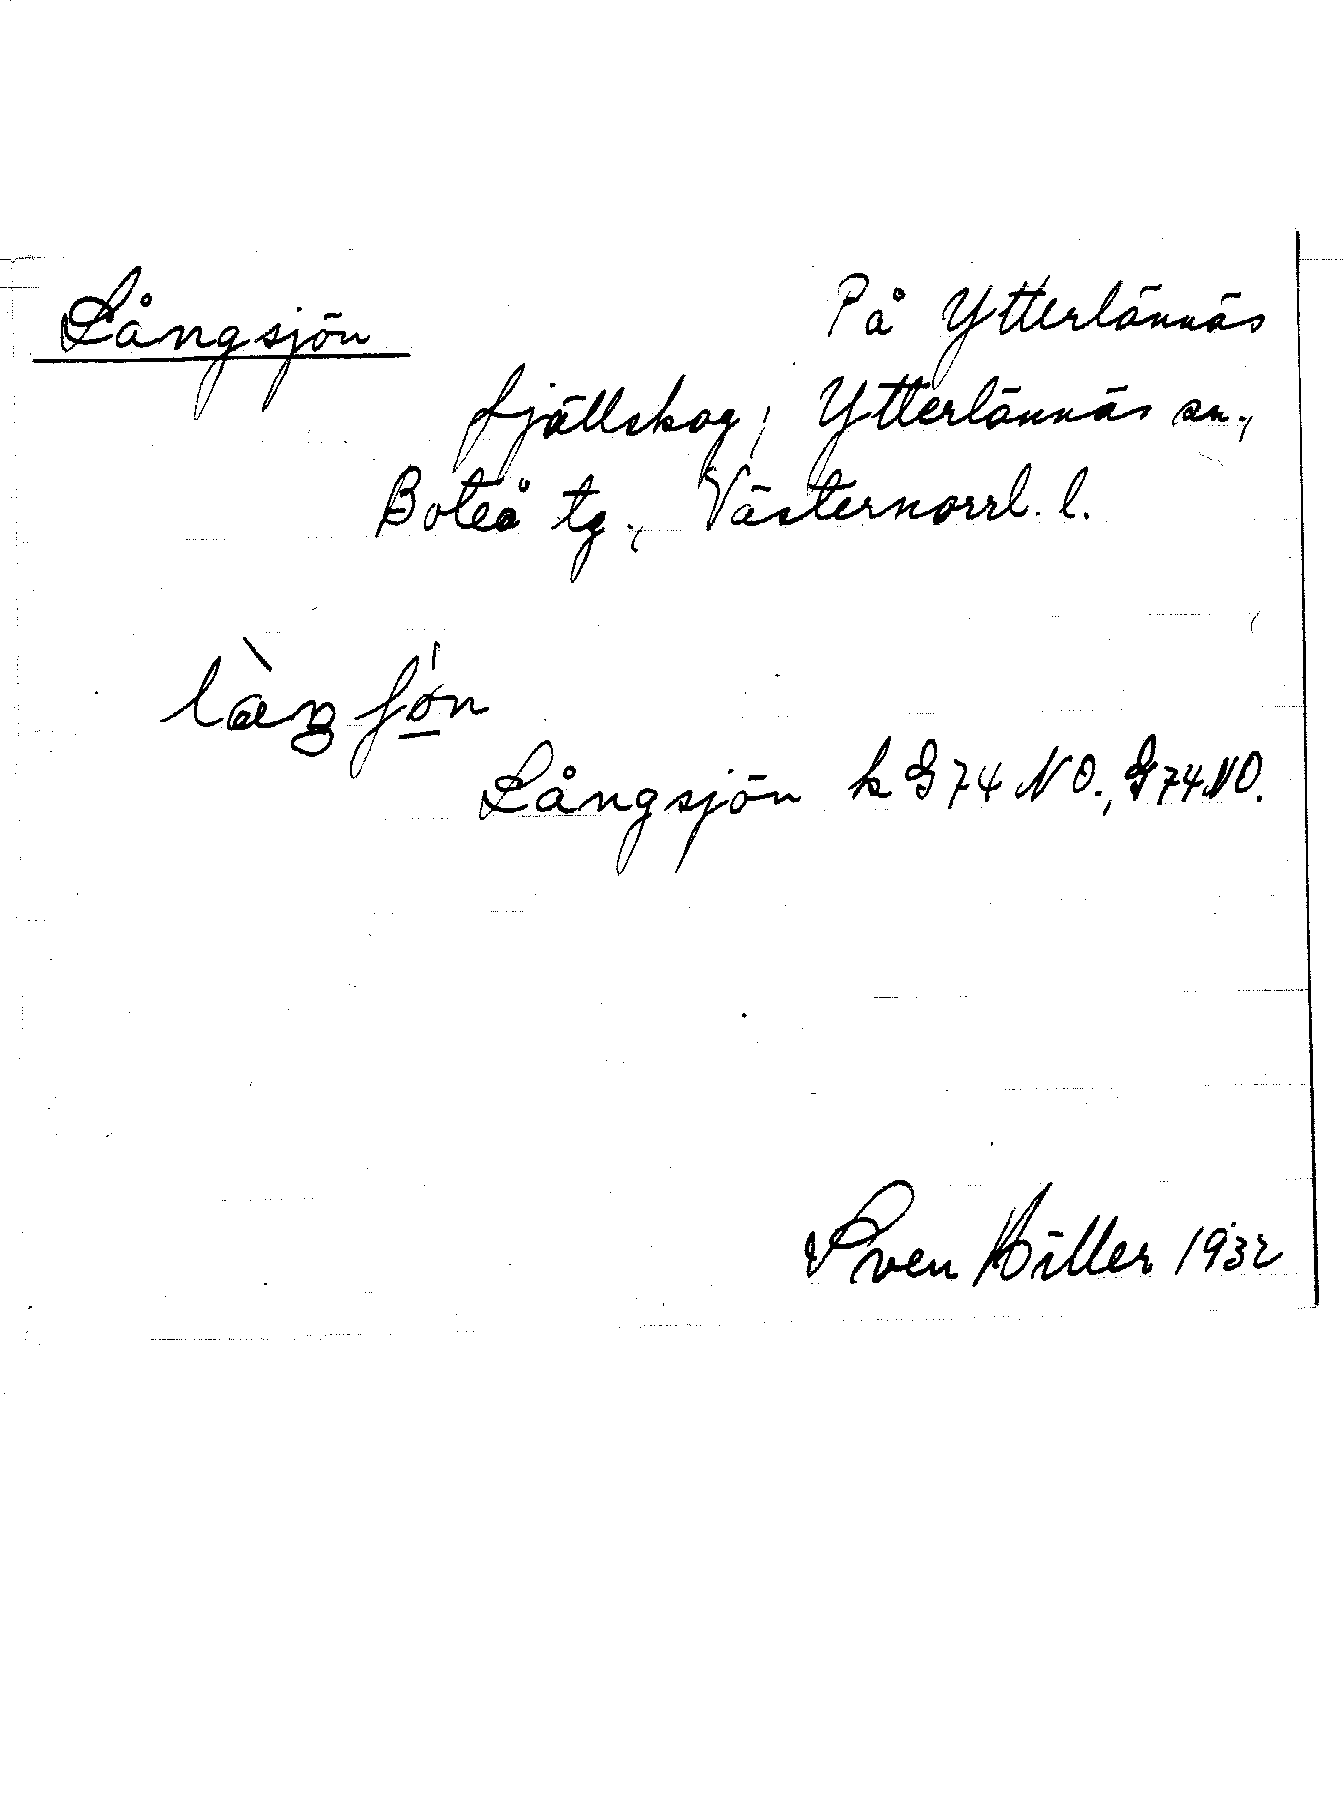 Långsjön
På Ytterlännäs
fjällskog, Ytterlännäs sn.,
Boteå tg., Västernorrl. l.
Långsjön k G74 NO., G74NO.
Sven Hiller 1932